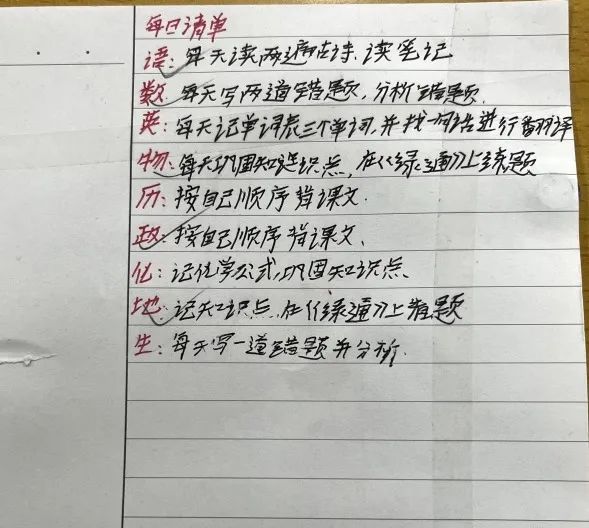 每日清单
语:每天读两遍古诗.读笔记
数.每天写两道错题,分析错题.
英:每天记单词表三个单词,并找一句话进行翻译
物:每天巩固知识点,在《绿通》上练题
历:按自己顺序背课文.
政:按自己顺序背课文、
化:记化学公式,巩固知识点.
地:记知识点,在《绿通》上看题
生:每天写一道错题并分析.